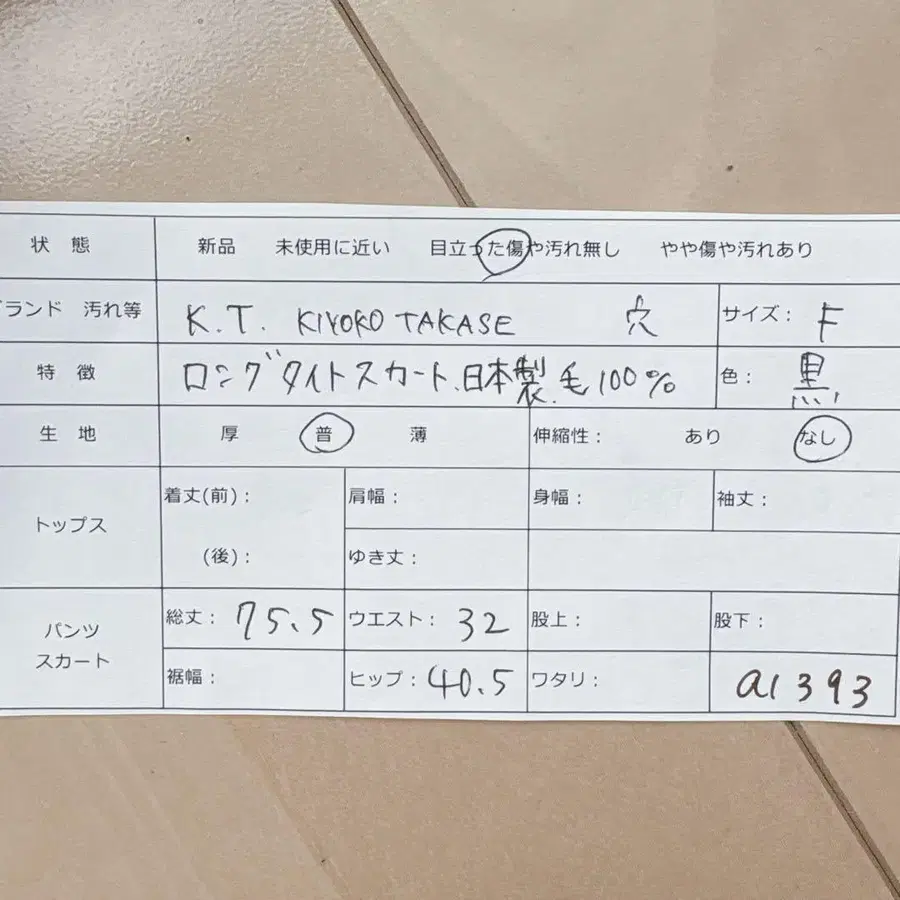 状態 新品 未使用に近い 目立った傷や汚れ無し やや傷や汚れあり
ランド 汚れ等 K.T. KIYOKO TAKASE 穴 サイズ： F
特徴 ロングタイトスカート、日本製、毛100% 色： 黒
生地 厚 普 薄 伸縮性： あり なし
トップス 着丈(前)： 肩幅： 身幅： 袖丈：
(後)： ゆき丈：
パンツ スカート 総丈： 75.5 ウエスト： 32 股上： 股下：
裾幅： ヒップ： 40.5 ワタリ： a1393